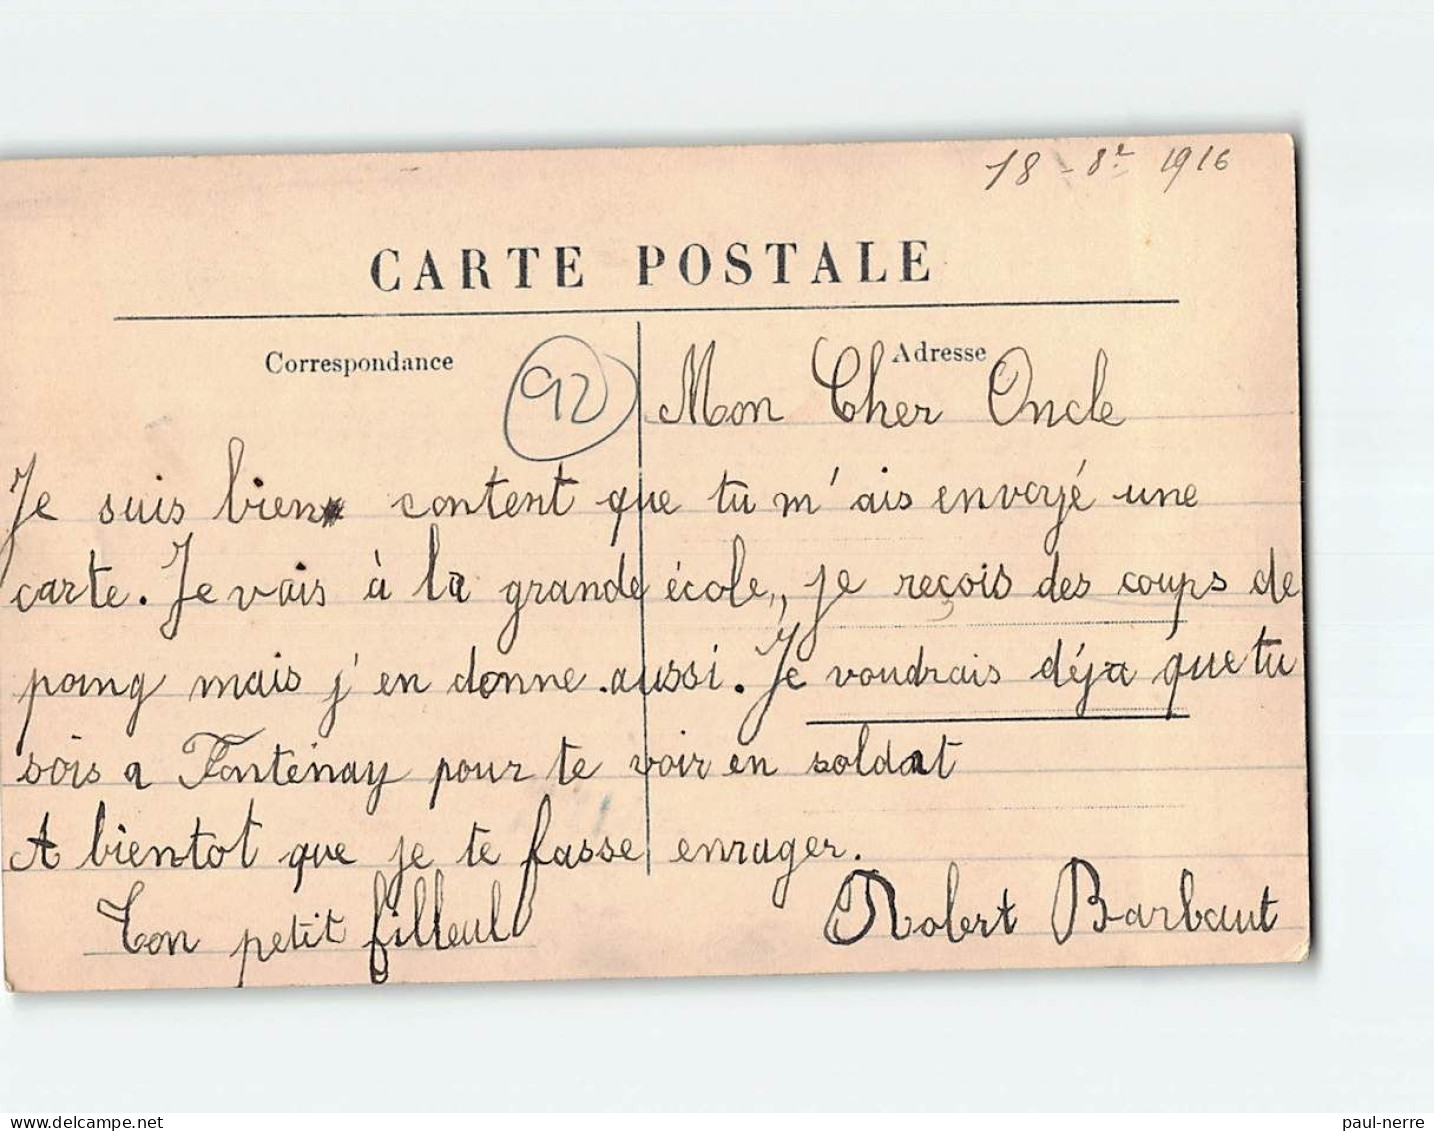 18 - 8re 1916
CARTE POSTALE
Correspondance
Adresse
92
Mon Cher Oncle
Je suis bien content que tu m'ais envoyé une
carte. Je vais à la grande école, je reçois des coups de
poing mais j'en donne aussi. Je voudrais déja que tu
sois a Fontenay pour te voir en soldat
A bientot que je te fasse enrager.
Ton petit filleul
Robert Barbaut
paul-nerre